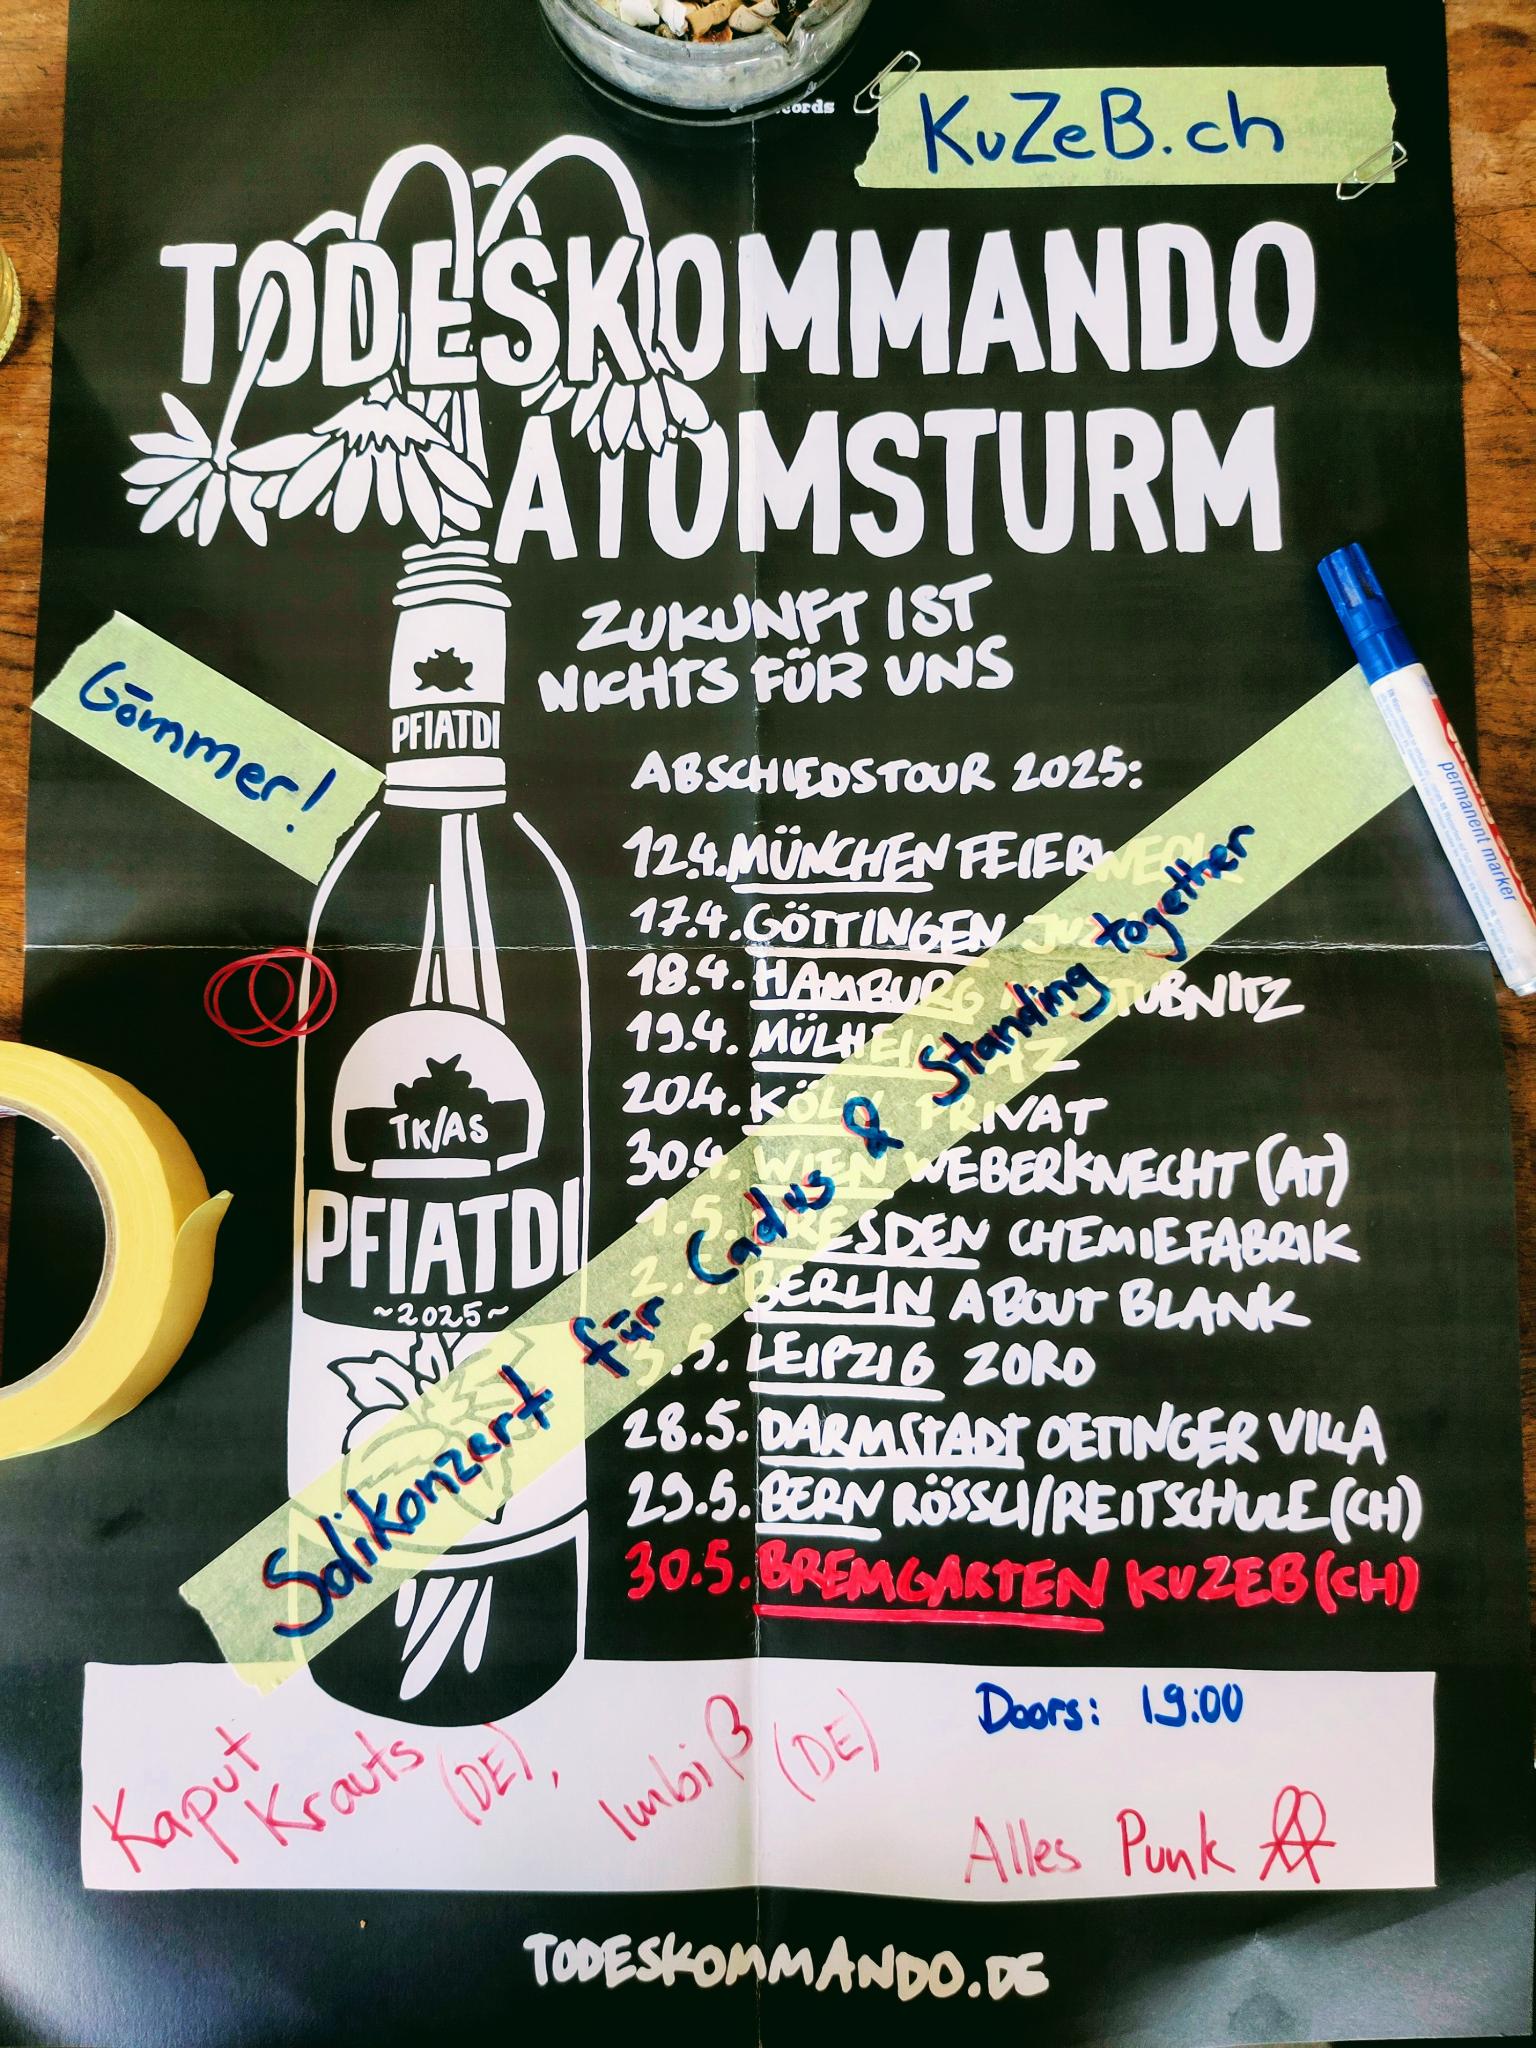 cords
KuZeB.ch
TODESKOMMANDO
ATOMSTURM
ZUKUNFT IST
NICHTS FÜR UNS
Gömmer!
PFIATDI
ABSCHIEDSTOUR 2025:
12.4. MÜNCHEN FEIERWERK
17.4. GÖTTINGEN
18.4. HAMBURG STUBNITZ
19.4. MÜLHEIM AZ
20.4. KÖLN PRIVAT
30.4. WIEN WEBERKNECHT (AT)
1.5. DRESDEN CHEMIEFABRIK
2.5. BERLIN ABOUT BLANK
3.5. LEIPZIG ZORO
28.5. DARMSTADT OETINGER VILLA
29.5. BERN RÖSSLI/REITSCHULE (CH)
30.5. BREMGARTEN KUZEB (CH)
TK/AS
PFIATDI
~2025~
Solikonzert für Cadus & Standing together
permanent marker
Doors: 19:00
Kaput
Krauts (DE), Imbiß (DE)
Alles Punk
TODESKOMMANDO.DE